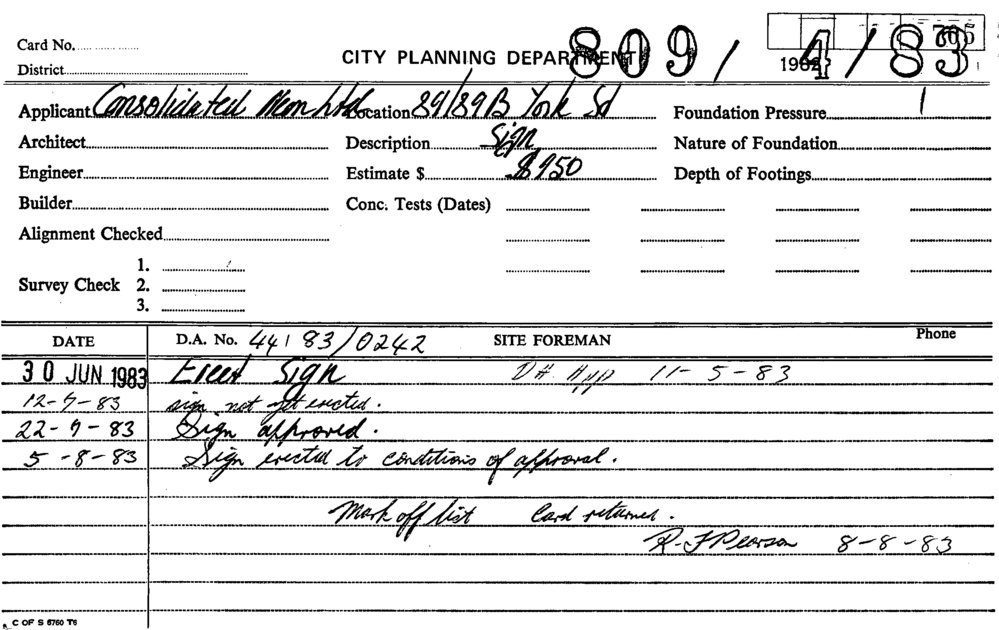 Card No.
District
CITY PLANNING DEPARTMENT
809/4/83
705
1982
Applicant Consolidated Neon Ltd Location 89/89B York St Foundation Pressure
Architect Description Sign Nature of Foundation
Engineer Estimate $ $950 Depth of Footings
Builder Conc. Tests (Dates)
Alignment Checked
1.
Survey Check 2.
3.
DATE D.A. No. 44/83/0242 SITE FOREMAN Phone
30 JUN 1983 Erect Sign DA App 11-5-83
12-7-83 sign not yet erected.
22-7-83 Sign approved.
5-8-83 Sign erected to conditions of approval.
Mark off list Card returned.
R-F Pearson 8-8-83
C OF S 6760 T6